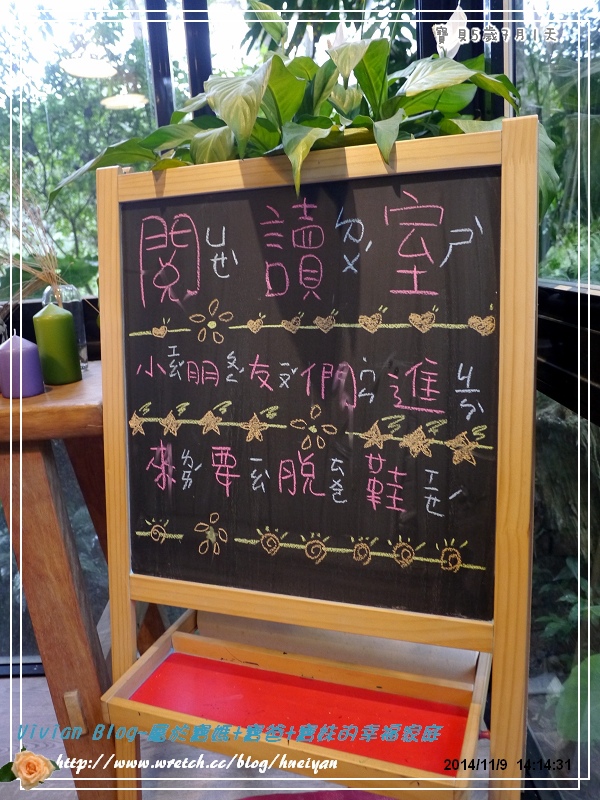 寶貝5歲9月1天
閱ㄩㄝˋ讀ㄉㄨˊ室ㄕˋ
小ㄒㄧㄠˇ朋ㄆㄥˊ友ㄧㄡˇ們ㄇㄣ˙進ㄐㄧㄣˋ
來ㄌㄞˊ要ㄧㄠˋ脫ㄊㄨㄛ鞋ㄒㄧㄝˊ
Vivian Blog-屬於寶媽+寶爸+寶妹的幸福家庭
http://www.wretch.cc/blog/hneiyan
2014/11/9 14:14:31